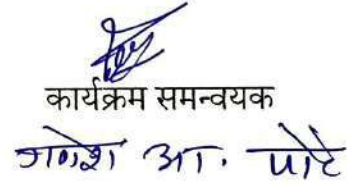 कार्यक्रम समन्वयक
गणेश आ. पोटे